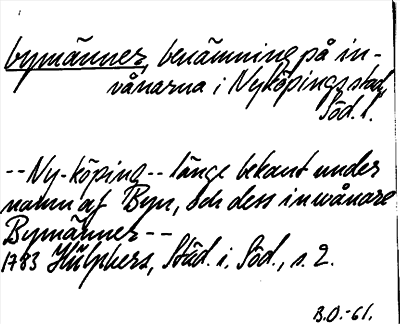 bymänner, benämning på in-
vånarna i Nyköpings stad,
Söd. l.
--Ny-köping-- länge bekant under
namn af Byn, och dess inwånare
Bymänner--
1783 Hülphers, Städ. i. Söd., s. 2.
B.O.-61.